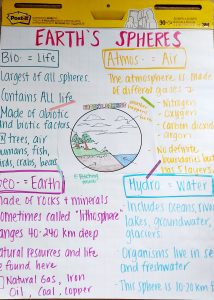 Post-it
EARTH'S SPHERES
Bio = Life
Largest of all spheres.
Contains ALL life
Made of abiotic
and biotic factors.
trees, air
humans, fish,
birds, crabs, bead
Atmos = Air
The atmosphere is made
of different gases:
- Nitrogen
- Oxygen
- Carbon dioxide
- Argon
- No definite
boundaries but
has 5 layers
Geo = Earth
Made of rocks + minerals
Sometimes called "lithosphere"
ranges 40-240 km deep
Natural resources and life
are found here
Natural Gas, Iron
Oil, Coal, Copper
Hydro = Water
- Includes oceans, rivers
lakes, groundwater,
glaciers.
- Organisms live in sea
and freshwater
- This sphere is 10-20 km